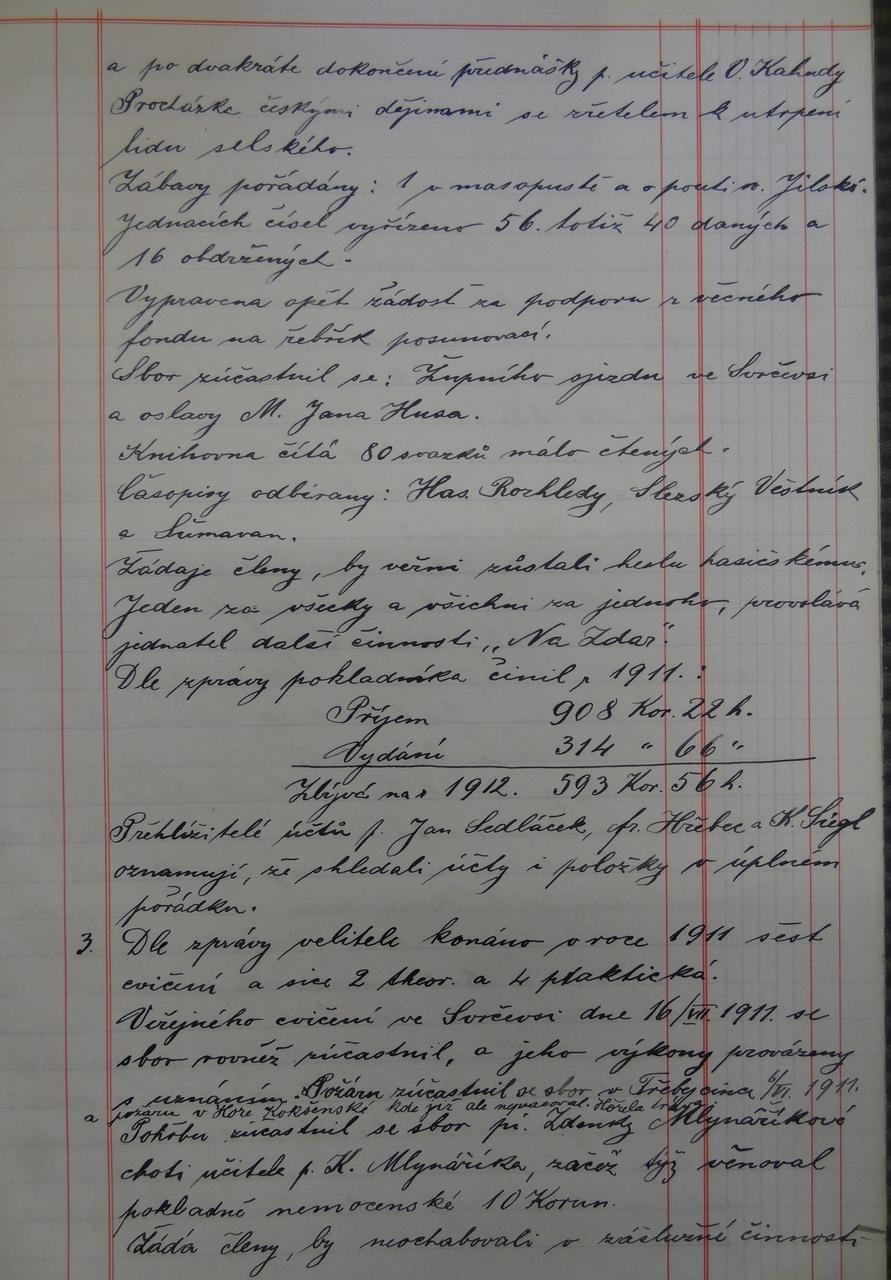 a po dvakráte dokončení přednášky p. učitele V. Kahudy
Procházka českými dějinami se zřetelem k utrpení
lidu selského.
Zábavy pořádány: 1 v masopustě a o pouti sv. Jilské.
Jednacích čísel vyřízeno 56. totiž 40 daných a
16 obdržených.
Vypravena opět žádost za podporu z věcného
fondu na žebřík posunovací.
Sbor zúčastnil se: Župního sjezdu ve Svrčevsi
a oslavy M. Jana Husa.
Knihovna čítá 80 svazků málo čtených.
Časopisy odbírany: Has. Rozhledy, Slezský Věstník
a Šumavan.
Žádaje členy, by věrni zůstali heslu hasičskému.
Jeden za všecky a všichni za jednoho, provolává
jednatel další činnosti „Na Zdar“.
Dle zprávy pokladníka činil r 1911. :
Příjem 908 Kor. 22 h.
Vydání 314 " 66 "
Zbývá na r 1912. 593 Kor. 56 h.
Přehlížitelé účtů p. Jan Sedláček, fr. Hřebec a K. Siegl
oznamují, že shledali účty i položky v úplnem
pořádku.
3. Dle zprávy velitele konáno v roce 1911 sest
cvičení a sice 2 theor. a 4 ptaktická.
Veřejného cvičení ve Svrčevsi dne 16/VII. 1911. se
sbor rovněž zúčastnil, a jeho výkony provázeny
s uznáním. Požáru zúčastnil se sbor v Třebýcina 6/VI. 1911.
a požáru v Hoře Kokšenské kde již ale Hořela
Pohřbu zúčastnil se sbor pí. Zdenky Mlynaříkové
choti učitele p. K. Mlynáříka, začež týž věnoval
pokladně nemocenské 10 Korun.
Žádá členy, by neochabovali v záslužné činnosti